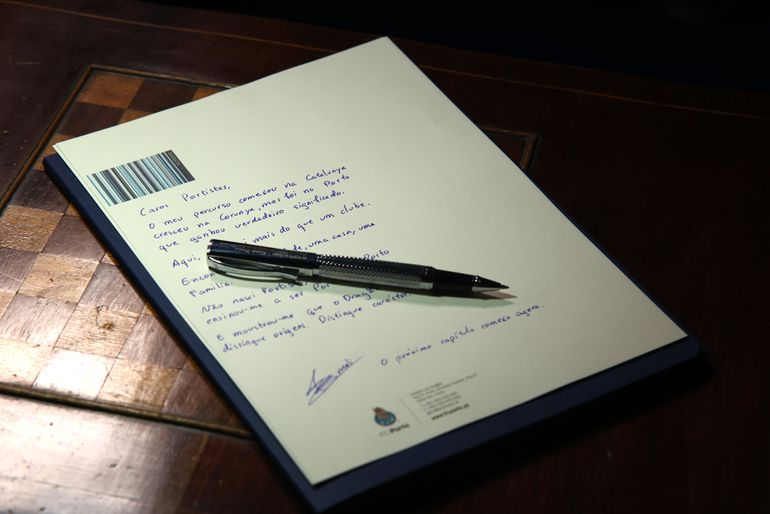 Caros Portistas,
O meu percurso começou na Catalunya
cresceu na Corunya, mas foi no Porto
que ganhou verdadeiro significado.
Aqui, mais do que um clube.
uma casa, uma
Família.
Não nasci Portista, Porto
ensinou-me a ser
E mostrou-me que o Dragão
distingue origens. Distingue carácter.
O próximo capítulo começa agora.
FC Porto
www.fcporto.pt